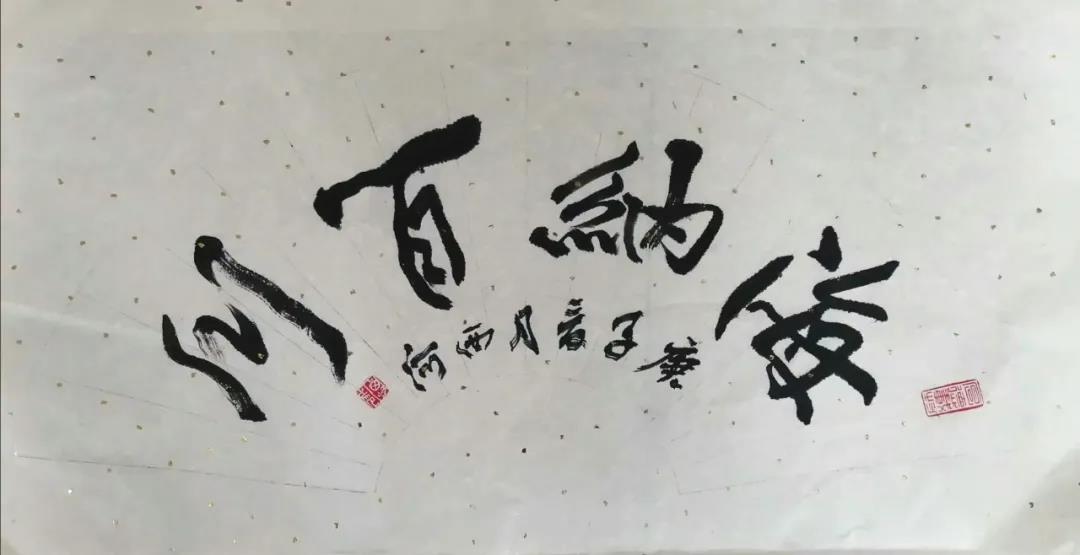 海纳百川
庚子春月西河